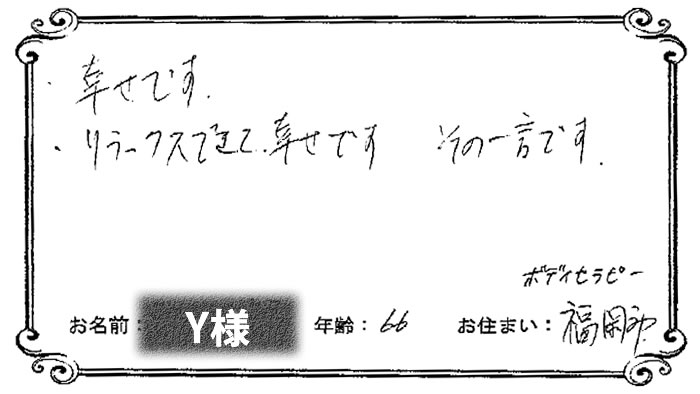 ・幸せです.
・リラックスできて、幸せです その一言です.
ボディセラピー
お名前： Y様 年齢： 66 お住まい： 福岡市